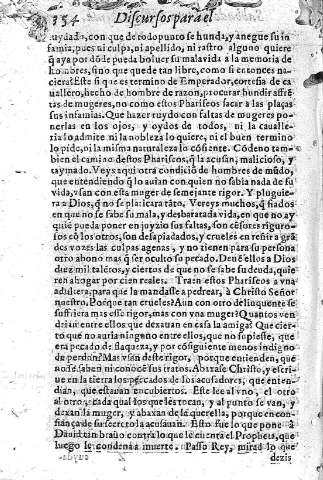 154 Discursos para el
ruydad, con que de todo punto se hunda, y anegue su in
famia, pues ni culpa, ni apellido, ni rastro alguno quiere
q̃ aya por dõde pueda boluer su maluada a la memoria de
hombres, sino que quede tan libre, como si entonces na-
ciera. Este si que es termino de Emperador, cortesia de ca-
uallero, hecho de hombre de razon, procurar hundir affrẽ
tas de mugeres, no como estos Phariseos sacar a las plaças
sus infamias. Que hazer ruydo con faltas de mugeres po-
nerlas en los ojos, y oydos de todos, ni la caualle-
ria lo admite ni la nobleza lo quiere, ni el buen termino
lo pide, ni la misma naturaleza lo cõsiente. Cõdeno tam-
bien el camino destos Phariseos, q̃ la acusan, malicioso, y
taymado. Veys aqui otra condiciõ de hombres de mũdo,
que entendiendo q̃ lo auian con quien no sabia nada de su
vida, vsan con esta muger de semejante rigor. Y pluguie-
ra a Dios, q̃ no se platicara tãto. Vereys muchos, q̃ fiados
en que no se sabe su mala, y desbaratada vida, en que no ay
quiẽ pueda poner en juyzio sus faltas, son cẽsores riguro-
sos cõ los otros, son desapiadados, y crueles en reñir a grã
des vozes las culpas agenas, y no tienen para su persona
otro abono mas q̃ ser oculto su pecado. Deuẽ ellos a Dios
diez mil talẽtos, y ciertos de que no se sabe su deuda, quie
ren ahogar por cien reales. Traen estos Phariseos a vna
adultera, para que la mandasse apedrear, à Christo Señor
nuestro. Porque tan crueles? Aun con otro delinquente se
suffriera mas esse rigor, mas con vna muger? Quantos ven
driã entre ellos que dexauan en casa la amiga? Que cier-
to que no auria ninguno entre ellos, que no supiesse, que
era pecado de flaqueza, y por cõsiguiente menos indigno
de perdon? Mas vsan deste rigor, porque entienden, que
no se saben ni conocẽ sus tratos. Abaxase Christo, y escri-
ue en la tierra los pecados de los acusadores, que enten-
dian, que estauan encubiertos. Este lee al vno, el otro
al otro, cada qual los que les tocan, y al punto se van, y
dexan la muger, y abaxan de la querella, porque en con-
fiança de su secreto la acusauan. Esto fue lo que pone à
Dauid tan brauo contra lo que le cuenta el Propheta, que
luego le condena à muerte. Passo Rey, mirad lo que
dezis